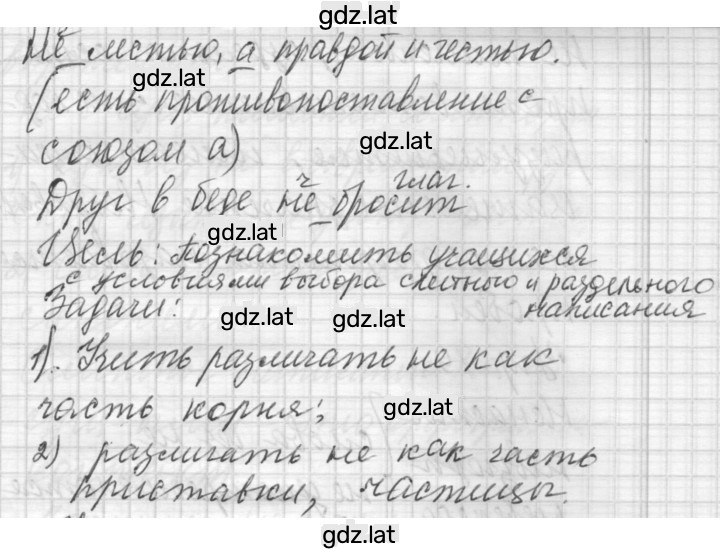 gdz.lat
Не лестью, а правдой и честью.
gdz.lat
(есть противопоставление с
gdz.lat
союзом а)
ч. глаг.
Друг в беде не бросит
gdz.lat
Цель: познакомить учащихся
с условиями выбора слитного и раздельного
написания
Задачи:
gdz.lat gdz.lat
1). Учить различать не как
часть корня;
gdz.lat
2) различать не как часть
приставки, частицы.
gdz.lat